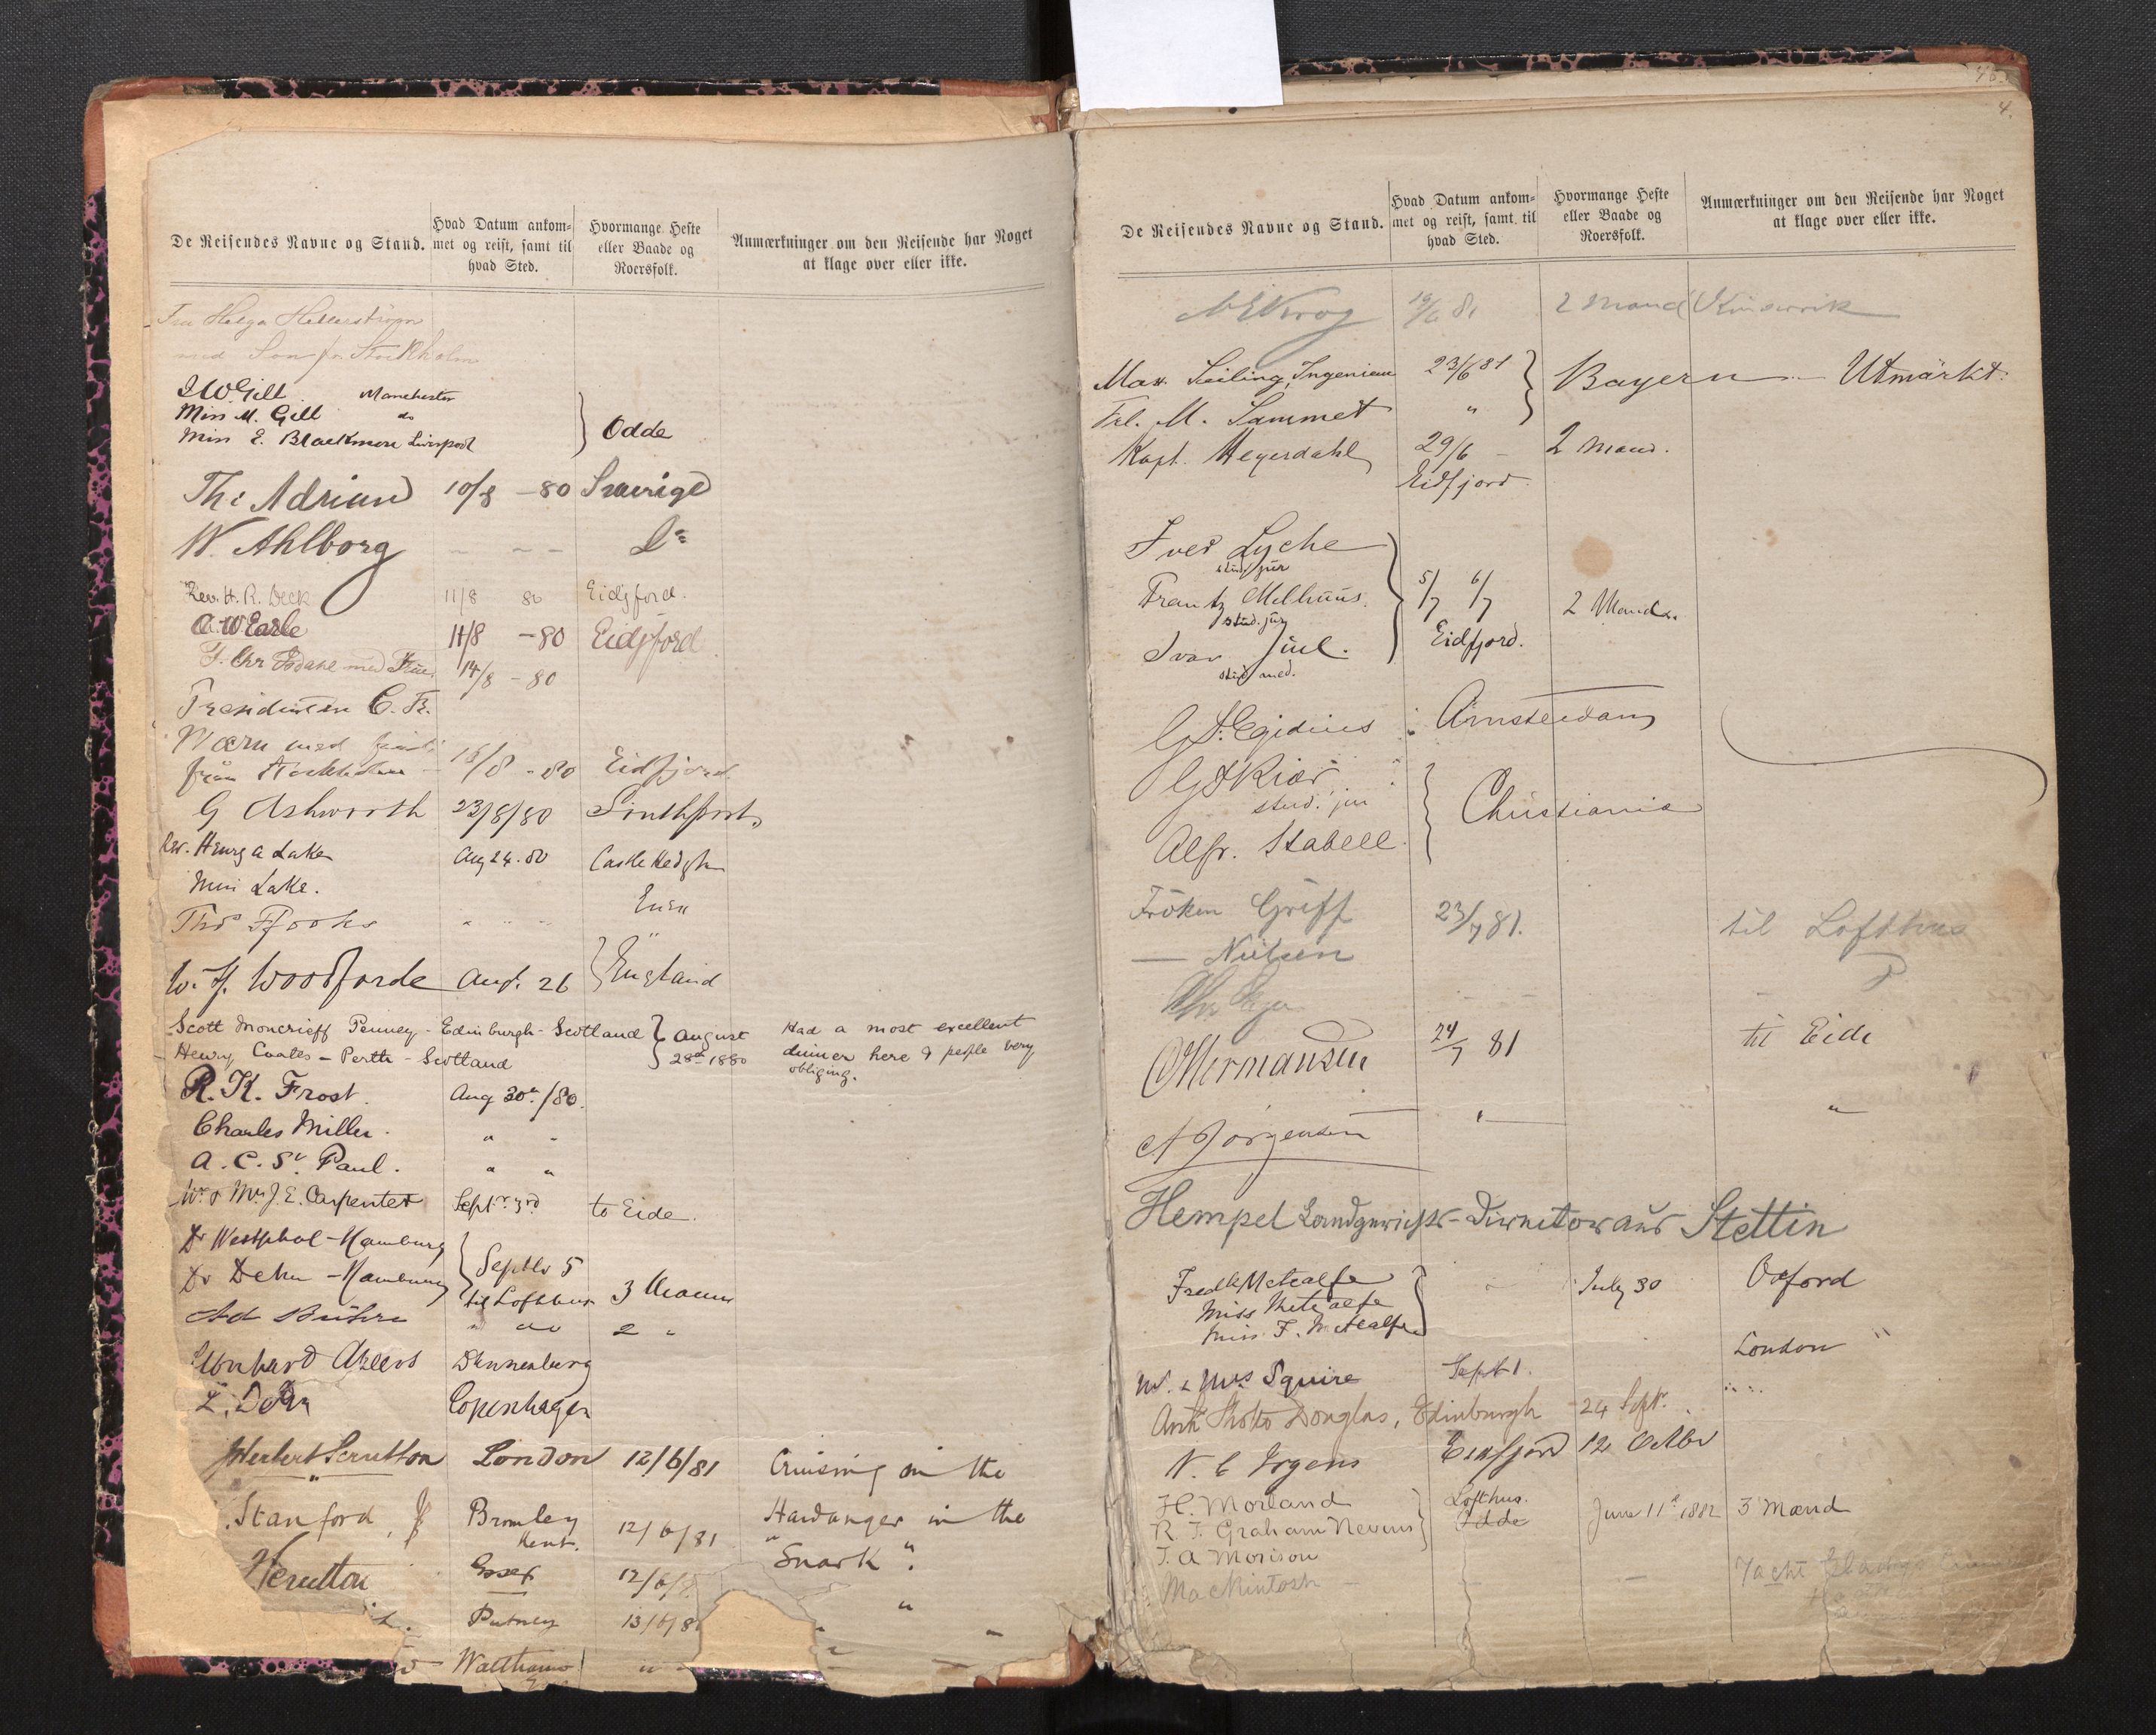 De Reisendes Navne og Stand.
Hvad Datum ankom-
met og reist, samt til
hvad Sted.
Hvormange Heste
eller Baade og
Roersfolk.
Anmærkninger om den Reisende har Noget
at klage over eller ikke.
Fru Helga
med Son fr Stockholm
J W Gill Manchester
Miss M. Gill do
Miss E. Blackmore Liverpool
Odde
Th: Adrian 10/8 -80 Sverige
W. Ahlborg - - - Do
Rev. H. R. Deck 11/8 80 Eidfjord.
A. W Earle 11/8 -80 Eidfjord
F. Chr Isdahl med Frue 14/8 - 80
Presidenten C. Fr.
Wærn med
från Stockholm 18/8 - 80 Eidfjord
G Ashworth 23/8/80 Southport
Rev. Henry A Lake Aug 24. 80 Castle
Miss Lake. Essex
Thos " " "
W. F. Woodforde Aug. 26 England
Scott Moncrieff Penney - Edinburgh - Scotland August
Henry Coates - Perth - Scotland 28th 1880
Had a most excellent
dinner here & people very
obliging.
R. K. Frost. Aug 30th/80.
Charles Miller. " "
A. C. St. Paul. " "
Mr & Mrs J. E. Carpenter Septr 3rd to Eide.
Dr Westphal - Hamburg
Dr Dehn - Hamburg Septbr 5
til Lofthus 3 Mann
Ad " do 2 "
Copenhagen
Herbert Scrutton London 12/6/81 Cruising in the
Stanford, Bromley
Kent. 12/6/81 Hardanger in the
Scrutton Essex 12/6/8 "Snark".
Putney 13/6/81 "
"
De Reisendes Navne og Stand.
Hvad Datum ankom-
met og reist, samt til
hvad Sted.
Hvormange Heste
eller Baade og
Roersfolk.
Anmærkninger om den Reisende har Noget
at klage over eller ikke.
4.
Krog 19/6 81 2 Mand Kinservik
Max. Seiling, Ingenieur 23/6 81 Bayern - Utmärkt.
Frl. M. Sammet "
Kapt. Heyerdahl 29/6 - 2 Mand.
Eidfjord
Lyche
stud jur
Frantz Melhuus. 5/7 6/7 2 Mand.
stud. jur
Ivar Juel. Eidfjord.
stud med.
G. Egidius : Amsterdam
Kiær
stud. jur
Christiania
Alfr. Stabell.
Fröken Griff 23/7 81. til Lofthus
— Nielsen
Hermansen 24/7 81 til Eide
A Jörgensen " "
Hempel Landgerichts-Direktor aus Stettin
Fredk Metcalfe July 30 Oxford
Miss Metcalfe
Miss F. Metcalfe
London "
Mr. & Mrs Squire Sept 1.
Douglas, Edinburgh 24 Septr.
N. C Irgens Eidfjord 12 Octbr
H. Morland Lofthus.
R. T. Graham Nevins Odde June 11th 1882 3 Mænd
T. A Morison
MacKintosh - - - Yacht Gladys